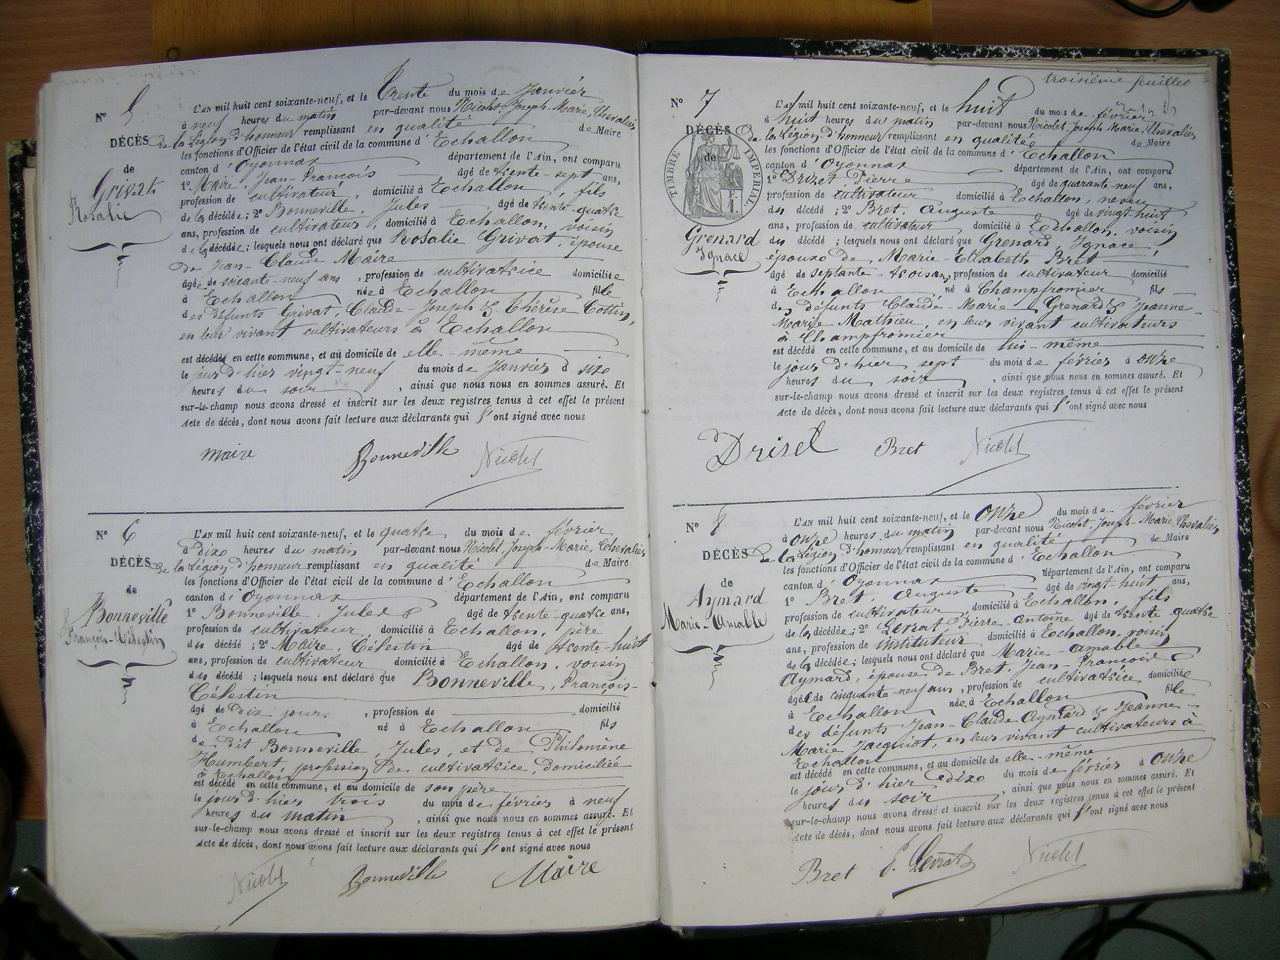 N° 5
DÉCÈS
de
Grivat
Rosalie
L'AN mil huit cent soixante-neuf, et le trente du mois de Janvier
à neuf heures du matin par-devant nous Nicolet, Joseph-Marie, Chevalier
de la Légion d'honneur remplissant en qualité de Maire
les fonctions d'Officier de l'état civil de la commune d'Echallon
canton d'Oyonnax département de l'Ain, ont comparu
1° Maire, Jean-François âgé de trente-sept ans,
profession de cultivateur domicilié à Echallon, fils
de la décédée; 2° Bonneville, Jules âgé de trente-quatre
ans, profession de cultivateur, domicilié à Echallon, voisin
de la décédée; lesquels nous ont déclaré que Rosalie Grivat, épouse
de Jean-Claude Maire
âgée de soixante-neuf ans, profession de cultivatrice domiciliée
à Echallon née à Echallon fille
des défunts Grivat, Claude Joseph & Thérèse Cottin,
en leur vivant cultivateurs à Echallon
est décédée en cette commune, et au domicile de elle-même
le jour d'hier vingt-neuf du mois de Janvier à dix
heures du soir, ainsi que nous nous en sommes assuré. Et
sur-le-champ nous avons dressé et inscrit sur les deux registres tenus à cet effet le présent
Acte de décès, dont nous avons fait lecture aux déclarants qui l'ont signé avec nous
Maire Bonneville Nicolet
N° 6
DÉCÈS
de
Bonneville
François-Célestin
L'AN mil huit cent soixante-neuf, et le quatre du mois de février
à dix heures du matin par-devant nous Nicolet, Joseph-Marie, Chevalier
de la Légion d'honneur remplissant en qualité de Maire
les fonctions d'Officier de l'état civil de la commune d'Echallon
canton d'Oyonnax département de l'Ain, ont comparu
1° Bonneville, Jules âgé de trente-quatre ans,
profession de cultivateur, domicilié à Echallon, père
du décédé; 2° Maire, Célestin âgé de trente-huit
ans, profession de cultivateur domicilié à Echallon, voisin
du décédé; lesquels nous ont déclaré que Bonneville, François-
Célestin
âgé de dix jours, profession de domicilié
à Echallon né à Echallon fils
de dit Bonneville, Jules, et de Philomène
Humbert, profession de cultivatrice, domiciliée
à Echallon
est décédé en cette commune, et au domicile de son père
le jour d'hier trois du mois de février à neuf
heures du matin, ainsi que nous nous en sommes assuré. Et
sur-le-champ nous avons dressé et inscrit sur les deux registres tenus à cet effet le présent
Acte de décès, dont nous avons fait lecture aux déclarants qui l'ont signé avec nous
Nicolet Bonneville Maire
troisième feuillet
N° 7
DÉCÈS
de
TIMBRE IMPÉRIAL
Grenard
Ignace
L'AN mil huit cent soixante-neuf, et le huit du mois de février
à huit heures du matin par-devant nous Nicolet, Joseph, Marie, Chevalier
de la Légion d'honneur remplissant en qualité de Maire
les fonctions d'Officier de l'état civil de la commune d'Echallon
canton d'Oyonnax département de l'Ain, ont comparu
1° Drizet Pierre âgé de quarante-neuf ans,
profession de cultivateur domicilié à Echallon, neveu
du décédé; 2° Bret, Auguste âgé de vingt huit
ans, profession de cultivateur domicilié à Echallon, voisin
du décédé; lesquels nous ont déclaré que Grenard, Ignace,
époux de Marie-Elisabeth Bret
âgé de septante-trois ans, profession de cultivateur domicilié
à Echallon né à Champfromier fils
des défunts Claude-Marie Grenard & Jeanne-
Marie Mathieu, en leur vivant cultivateurs
à Champfromier
est décédé en cette commune, et au domicile de lui-même
le jour d'hier sept du mois de février à onze
heures du soir, ainsi que nous nous en sommes assuré. Et
sur-le-champ nous avons dressé et inscrit sur les deux registres tenus à cet effet le présent
Acte de décès, dont nous avons fait lecture aux déclarants qui l'ont signé avec nous
Drisel Bret Nicolet
N° 8
DÉCÈS
de
Aymard
Marie-Amable
L'AN mil huit cent soixante-neuf, et le onze du mois de février
à onze heures du matin par-devant nous Nicolet, Joseph-Marie, Chevalier
de la Légion d'honneur remplissant en qualité de Maire
les fonctions d'Officier de l'état civil de la commune d'Echallon
canton d'Oyonnax département de l'Ain, ont comparu
1° Bret, Auguste âgé de vingt huit ans,
profession de cultivateur domicilié à Echallon, fils
de la décédée; 2° Levrat Pierre Antoine âgé de trente quatre
ans, profession de instituteur domicilié à Echallon, voisin
de la décédée; lesquels nous ont déclaré que Marie-amable
Aymard, épouse de Bret, Jean-François
âgée de cinquante neuf ans, profession de cultivatrice domiciliée
à Echallon née à Echallon fille
des défunts Jean-Claude Aymard & Jeanne-
Marie Jacquiot, en leur vivant cultivateurs à
Echallon
est décédé en cette commune, et au domicile de elle-même
le jour d'hier dix du mois de février à onze
heures du soir, ainsi que nous nous en sommes assuré. Et
sur-le-champ nous avons dressé et inscrit sur les deux registres tenus à cet effet le présent
Acte de décès, dont nous avons fait lecture aux déclarants qui l'ont signé avec nous
Bret P. Levrat Nicolet